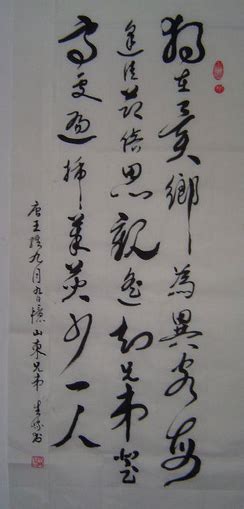 独在異鄉為異客每
逢佳節倍思親遙知兄弟登
高處遍插茱萸少一人
唐王维九月九日憶山東兄弟